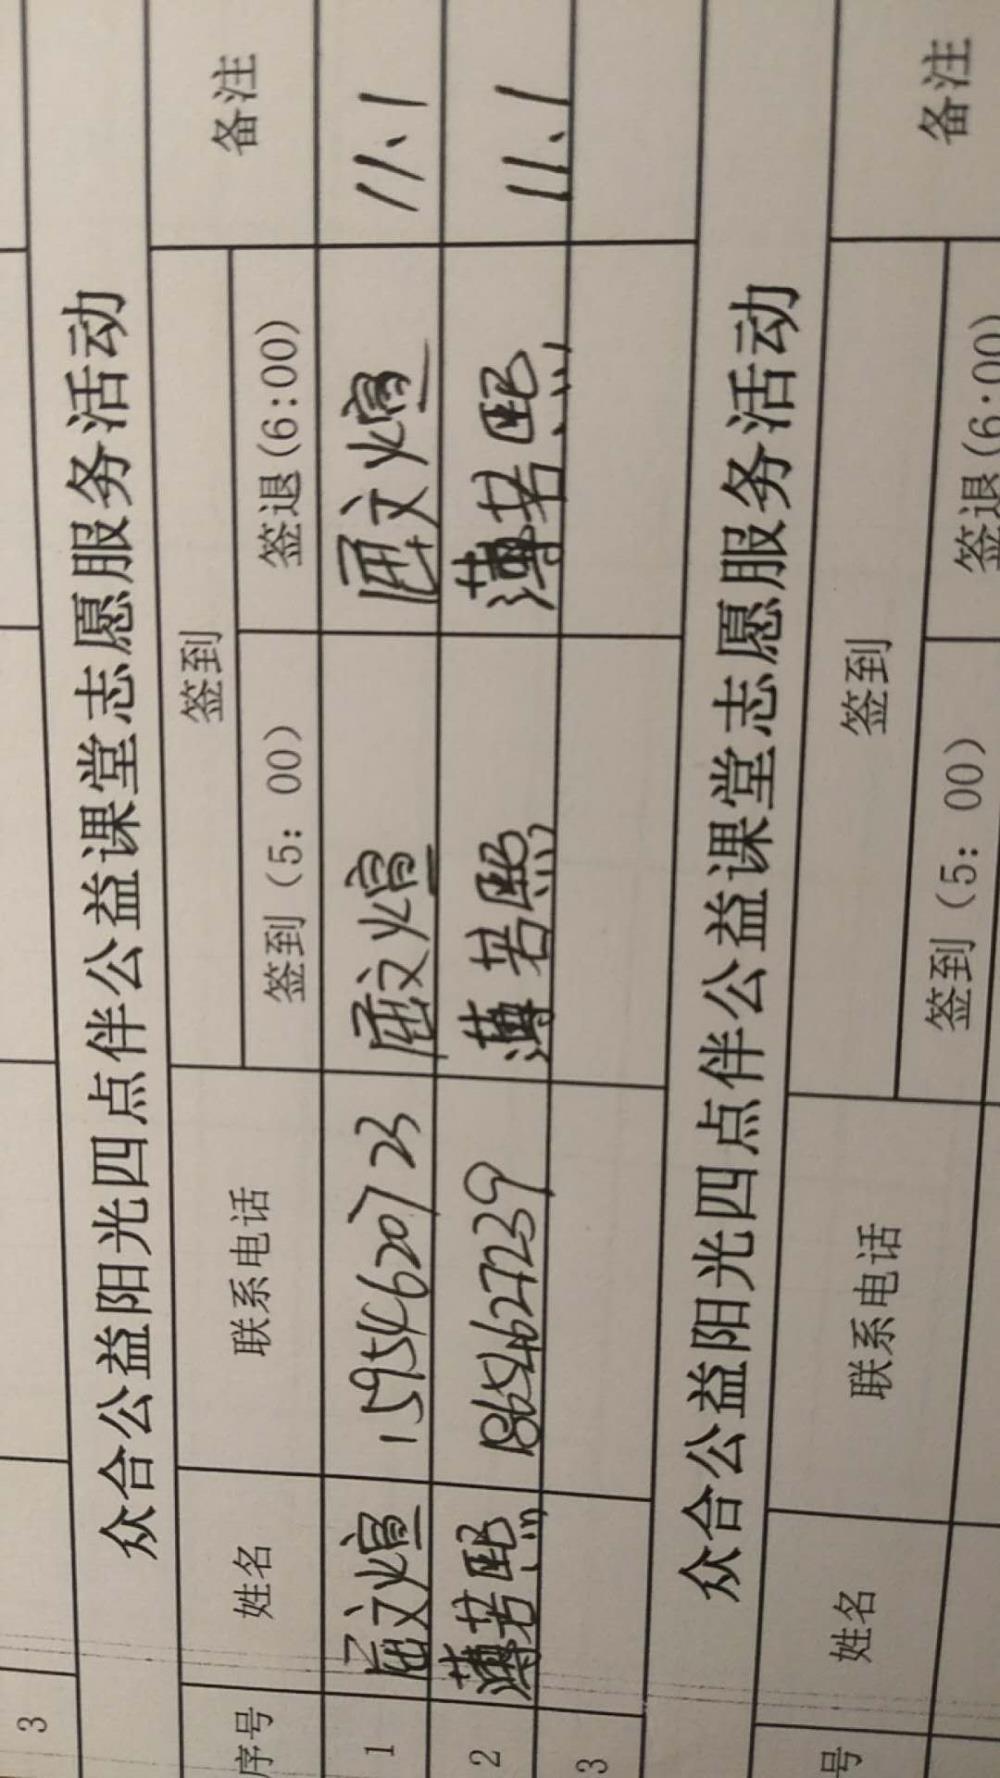 3
众合公益阳光四点伴公益课堂志愿服务活动
序号 姓名 联系电话 签到 备注
签到（5：00） 签退(6:00)
1 屈文煊 15954620723 屈文煊 屈文煊 11、1
2 薄若熙 18654627239 薄若熙 薄若熙 11、1
3
众合公益阳光四点伴公益课堂志愿服务活动
号 姓名 联系电话 签到 备注
签到（5：00） 签退(6:00)